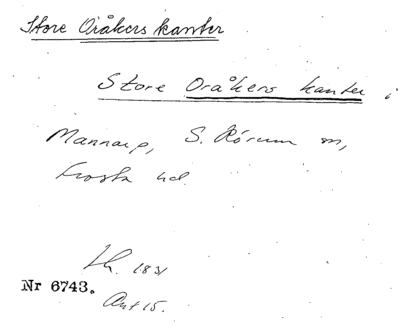 Store Oråkers kanter
Store Oråkers kanter i
Mannarp, S. Rörum sn,
Frosta hd.
Lh. 1831
Nr 6743.
Akt 15.